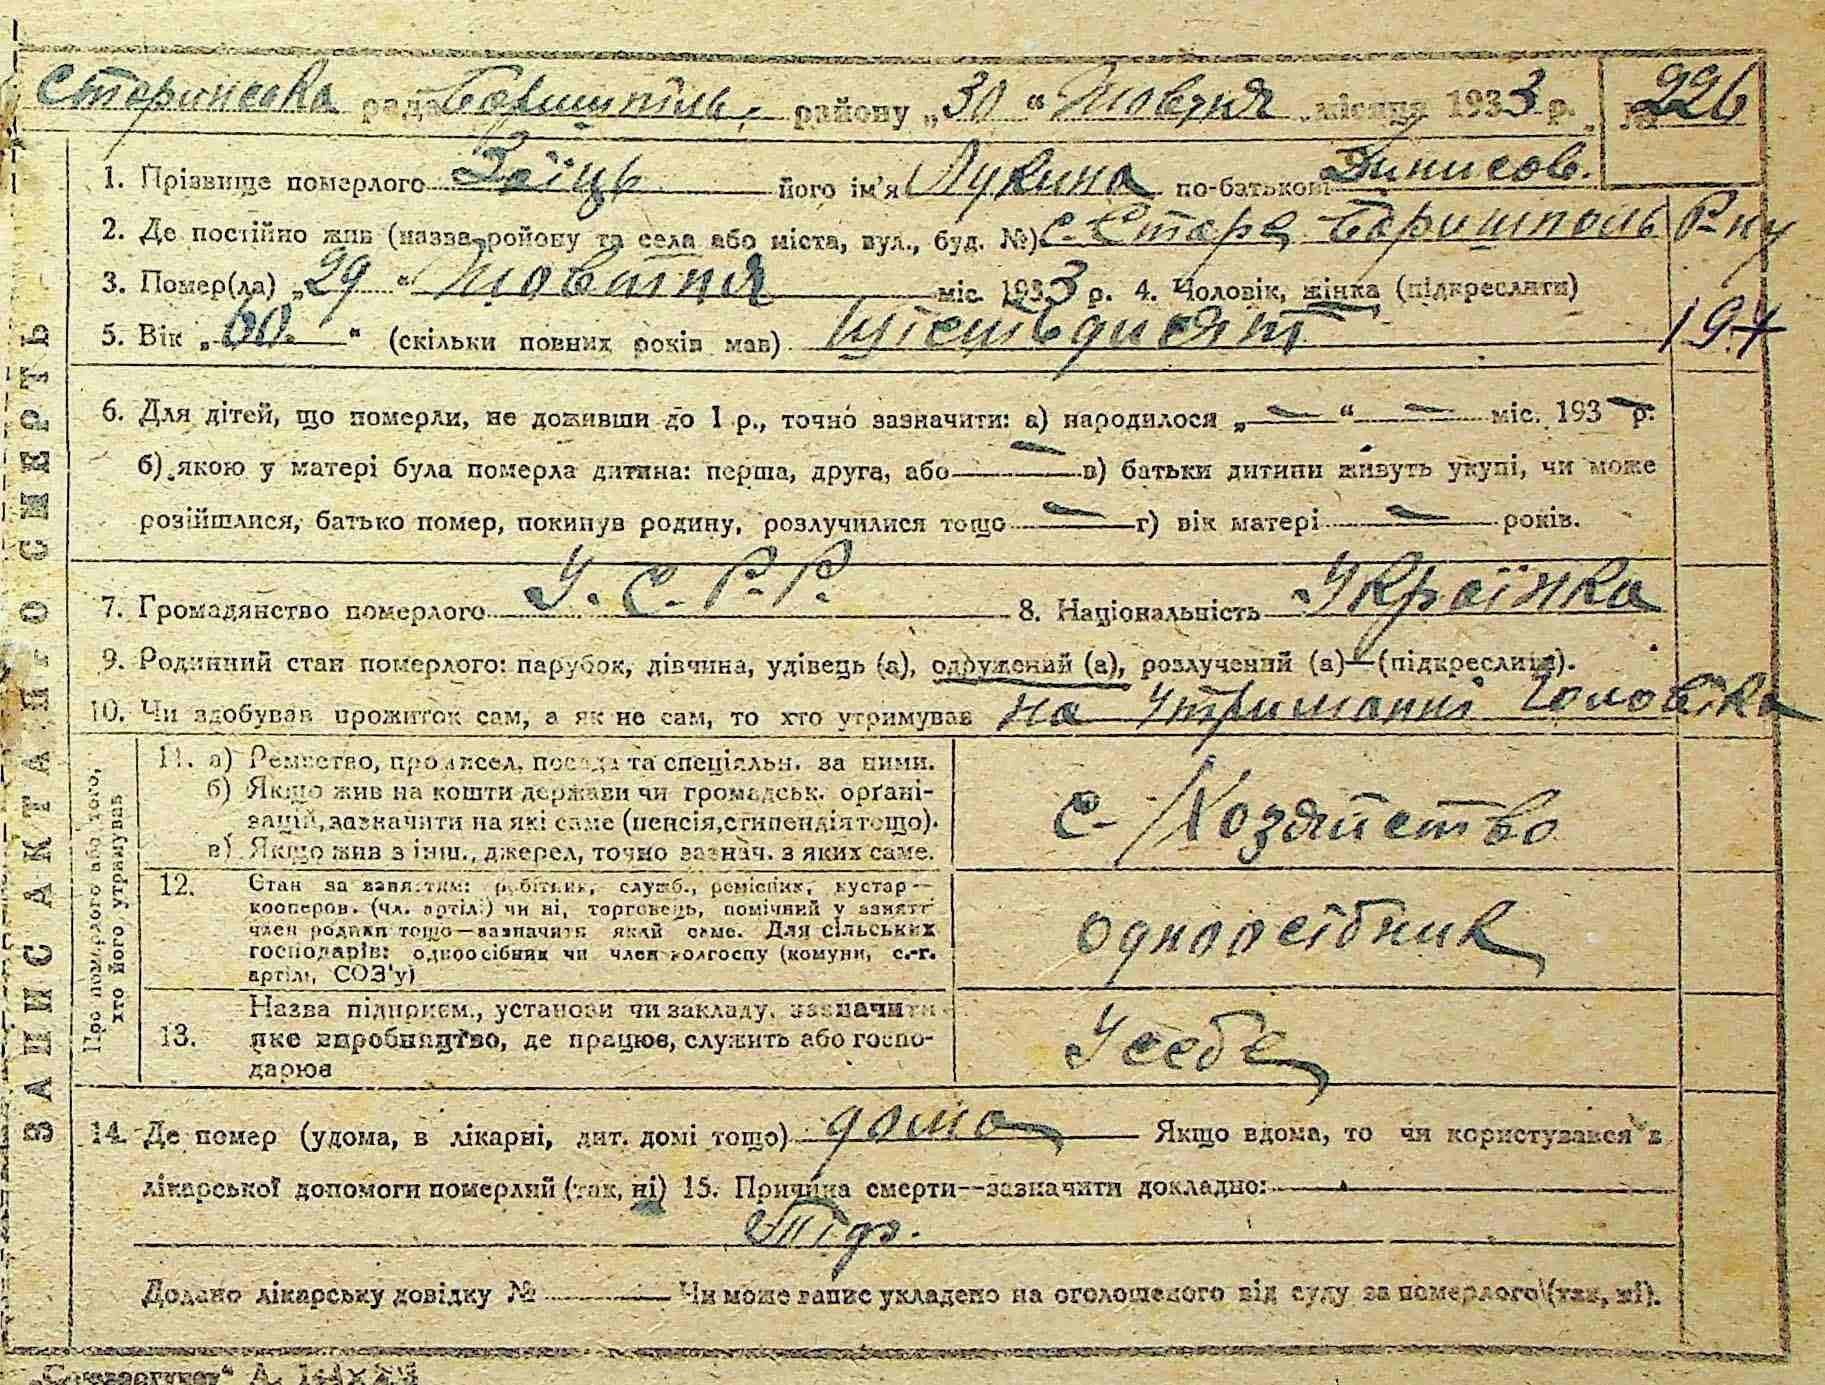 Старинська рада Боришпіль. району „30“ Жовтня місяця 1933 р. № 226
ЗАПИС АКТА ПРО СМЕРТЬ
1. Прізвище померлого Заїць його ім'я Лукина по-батькові Динисов.
2. Де постійно жив (назва району та села або міста, вул., буд. №) с. Старе Боришполь Р-ну
3. Помер(ла) „29“ Жовтня міс. 1933 р. 4. Чоловік, жінка (підкреслити)
5. Вік „60.“ (скільки повних років мав) Шістьдисят 194
6. Для дітей, що померли, не доживши до 1 р., точно зазначити: а) народилося „—“ — міс. 193— р.
б) якою у матері була померла дитина: перша, друга, або — в) батьки дитини живуть укупі, чи може
розійшлися, батько помер, покинув родину, розлучилися тощо — г) вік матері — років.
7. Громадянство померлого У. С. Р. Р. 8. Національність Українка
9. Родинний стан померлого: парубок, дівчина, удівець (а), одружений (а), розлучений (а)—(підкреслити).
10. Чи здобував прожиток сам, а як не сам, то хто утримував на утриманні Чоловіка
Про померлого або того,
хто його утримував
11. а) Ремество, промисел, посада та спеціяльн. за ними.
б) Якщо жив на кошти держави чи громадськ. органі-
зацій, зазначити на які саме (пенсія, стипендія тощо).
в) Якщо жив з інш., джерел, точно зазнач. з яких саме.
С-/Хозяйство
12. Стан за взяттям: робітник, служб., ремісник, кустар—
кооперов. (чл. артілі) чи ні, торговець, помічний у занятті
член родини тощо—зазначити який саме. Для сільських
господарів: одноосібник чи член колгоспу (комуни, с.-г.
артілі, СОЗ'у)
одноосібник
13. Назва підприєм., установи чи закладу, зазначити
яке виробництво, де працює, служить або госпо-
дарює
У себе
14. Де помер (удома, в лікарні, дит. домі тощо) дома Якщо вдома, то чи користувався в
лікарської допомоги померлий (так, ні) 15. Причина смерти—зазначити докладно:
Додано лікарську довідку № Чи може запис укладено на оголошеного від суду за померлого (так, ні).